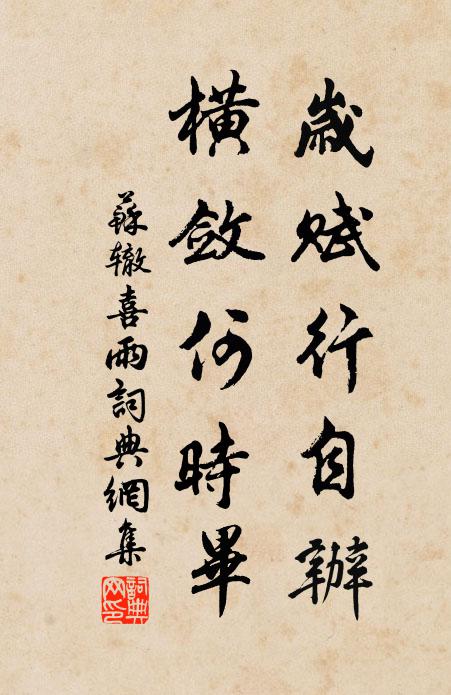 歲賦行自辦
橫斂何時畢
蘇轍喜雨詞典網集
詞典網印